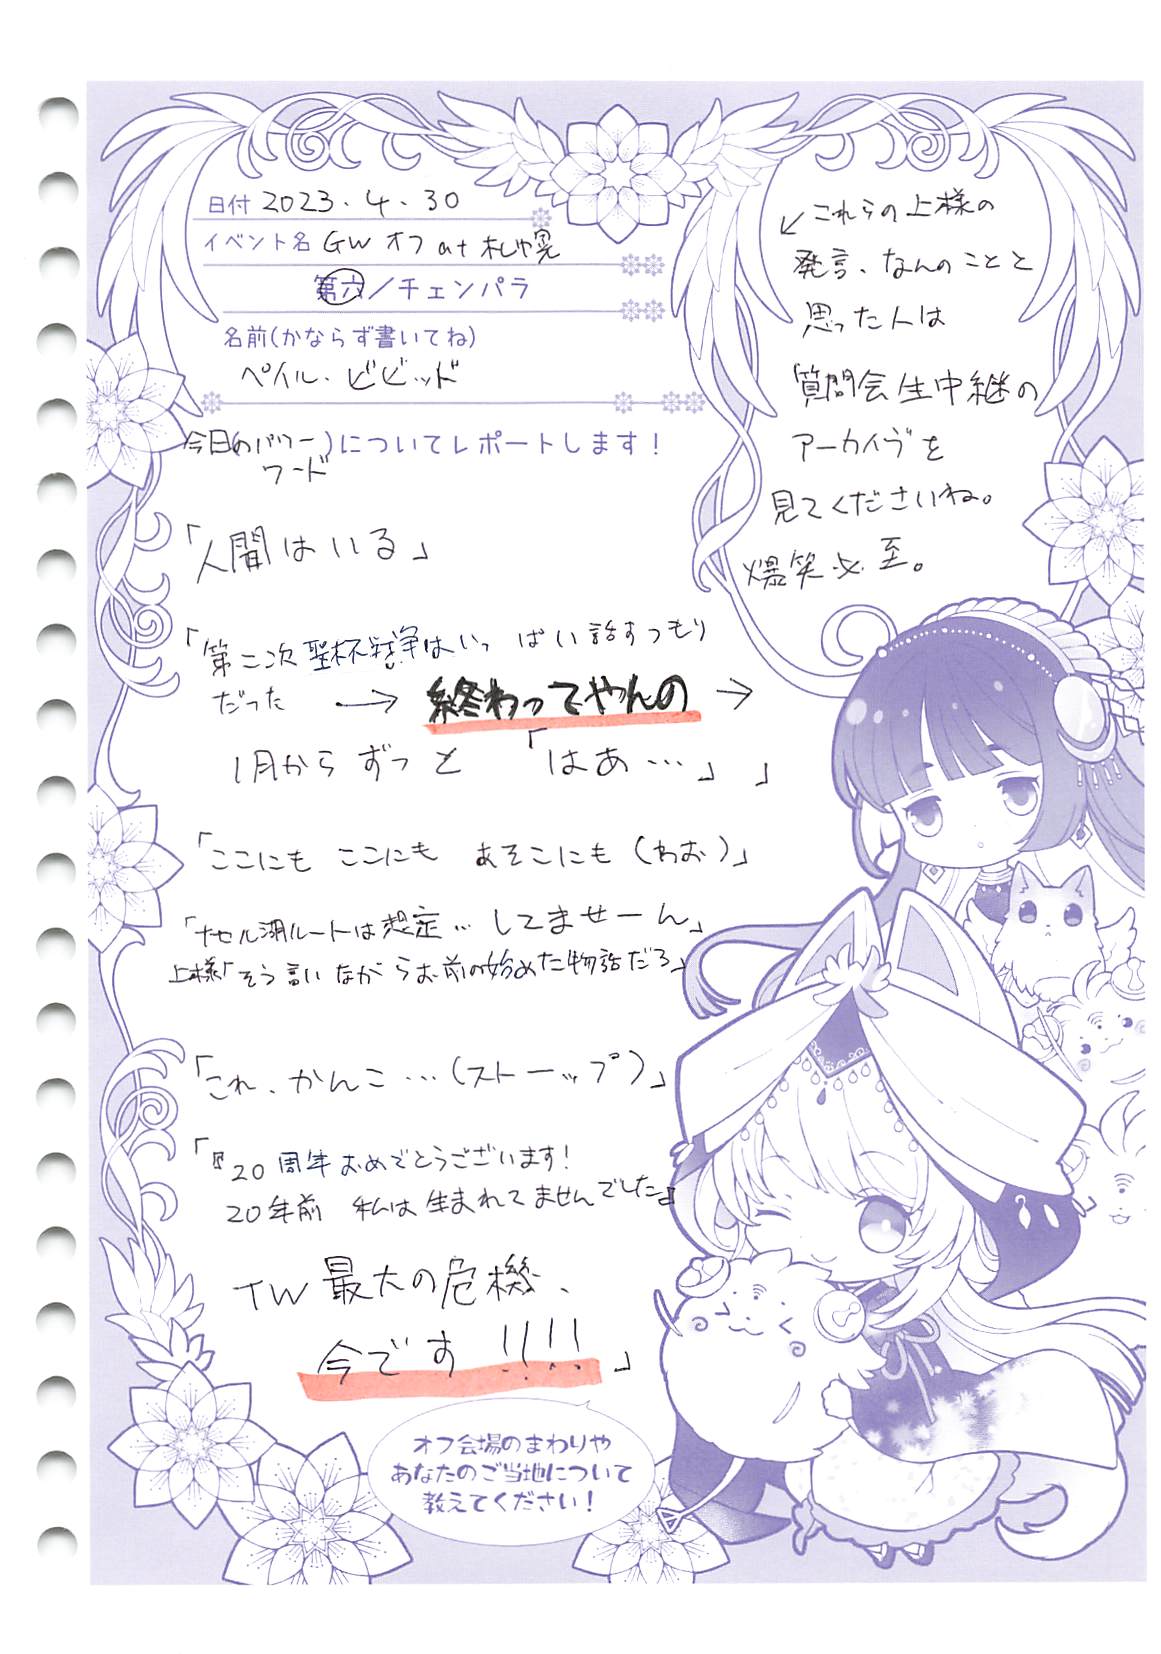 日付 2023.4.30
イベント名 GW オフ at 札幌
第六/チェンパラ
名前(かならず書いてね)
ペイル・ビビッド
今日の(パワーワード)についてレポートします!
「人間はいる」
「第二次聖杯戦争はいっぱい話すつもり
だった → 終わってやんの →
1月からずっと「はあ…」」
「ここにも ここにも あそこにも(わお)」
「ナセル湖ルートは想定…してませーん」
上様「そう言いながらお前の始めた物語だろ」
「これ、かんこ…(ストーップ)」
「『20周年おめでとうございます!
20年前 私は生まれてませんでした』
TW最大の危機、
今です!!!!」
↙これらの上様の
発言、なんのことと
思った人は
質問会生中継の
アーカイブを
見てくださいね。
爆笑必至。
オフ会場のまわりや
あなたのご当地について
教えてください!